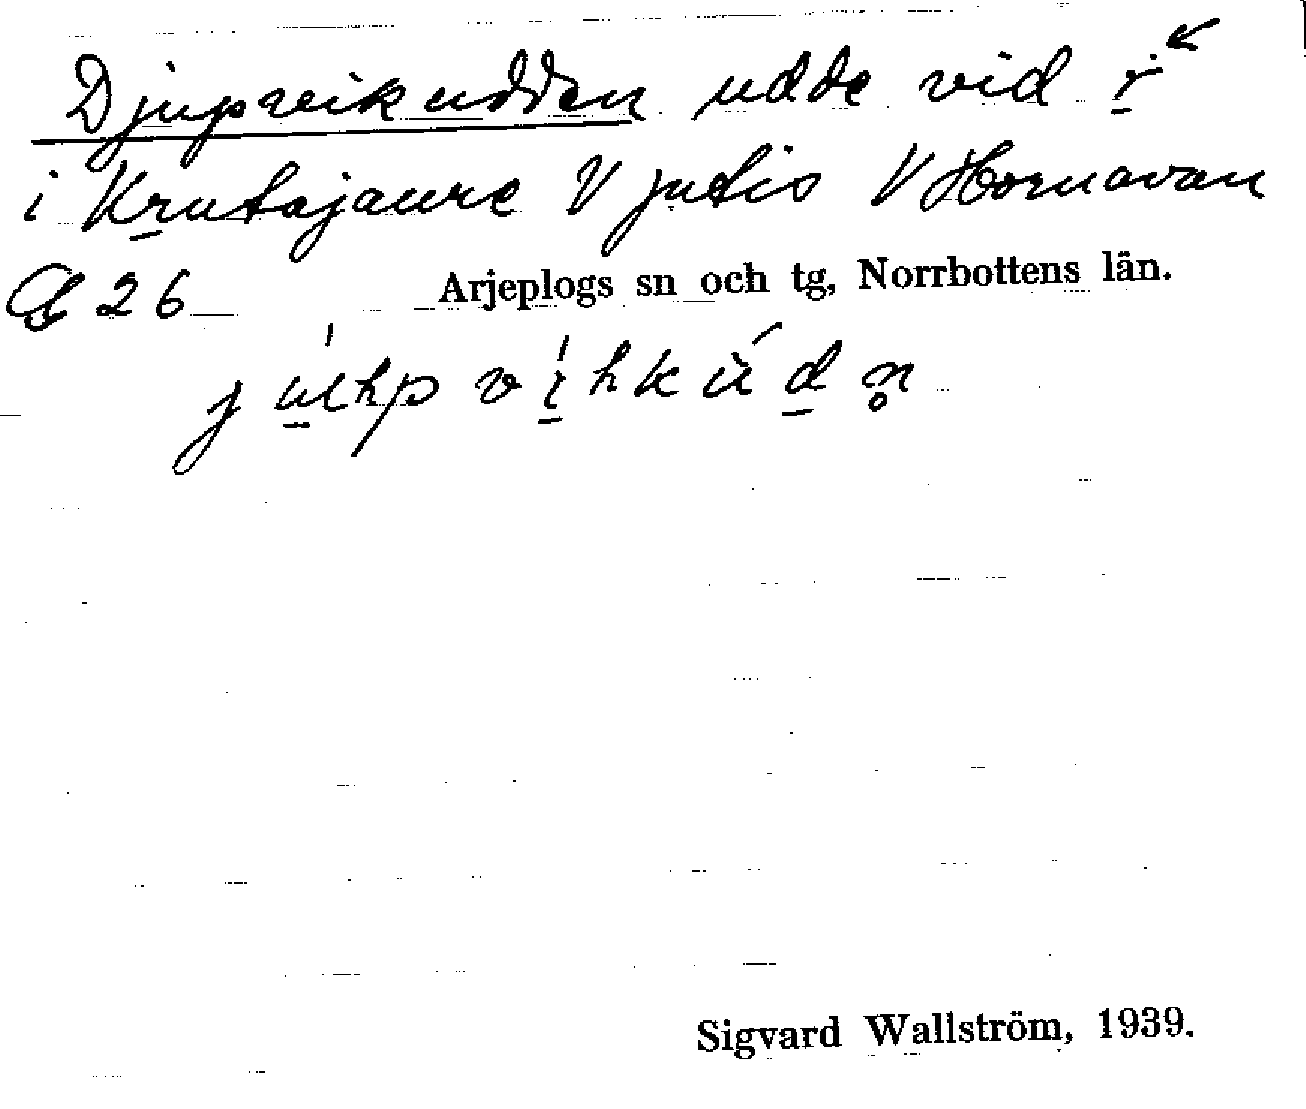 Djupveikudden udde vid v
i Krutajaure V Jutis V Hornavan
26 Arjeplogs sn och tg, Norrbottens län.
Sigvard Wallström, 1939.